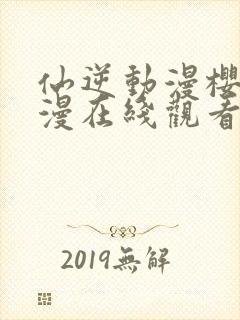 仙逆動漫櫻
漫在綫觀看
2019無解